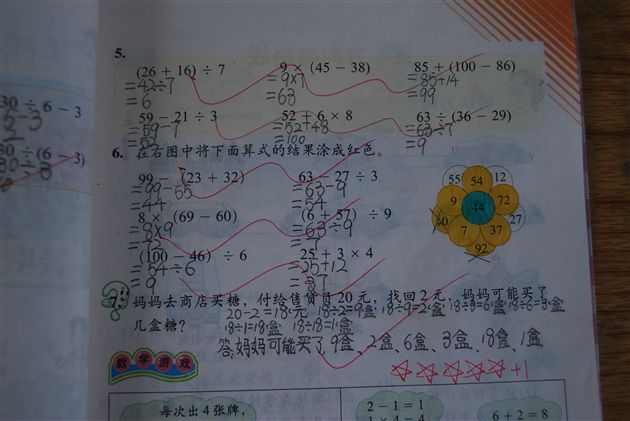 5.
(26 + 16) ÷ 7 9 × (45 − 38) 85 + (100 − 86)
= 42÷7 = 9×7 = 85+14
= 6 = 63 = 99
59 − 21 ÷ 3 52 + 6 × 8 63 ÷ (36 − 29)
= 59−7 = 52+48 = 63÷7
= 52 = 100 = 9
30 ÷ 6 − 3
6. 在右图中将下面算式的结果涂成红色。
99 − (23 + 32) 63 − 27 ÷ 3
= 99−55 = 63−9
= 44 = 54
8 × (69 − 60) (6 + 57) ÷ 9
= 8×9 = 63÷9
= 72 = 7
(100 − 46) ÷ 6 25 + 3 × 4
= 54÷6 = 25+12
= 9 = 37
55 54 12
9 44 72
7 37 27
92
7. 妈妈去商店买糖，付给售货员20元，找回2元，妈妈可能买了
几盒糖？
20−2=18元 18÷2=9盒 18÷9=2盒 18÷3=6盒 18÷6=3盒
18÷1=18盒 18÷18=1盒
答:妈妈可能买了9盒、2盒、6盒、3盒、18盒、1盒
+1
数学游戏
每次出4张牌，
2 − 1 = 1
6 + 2 = 8